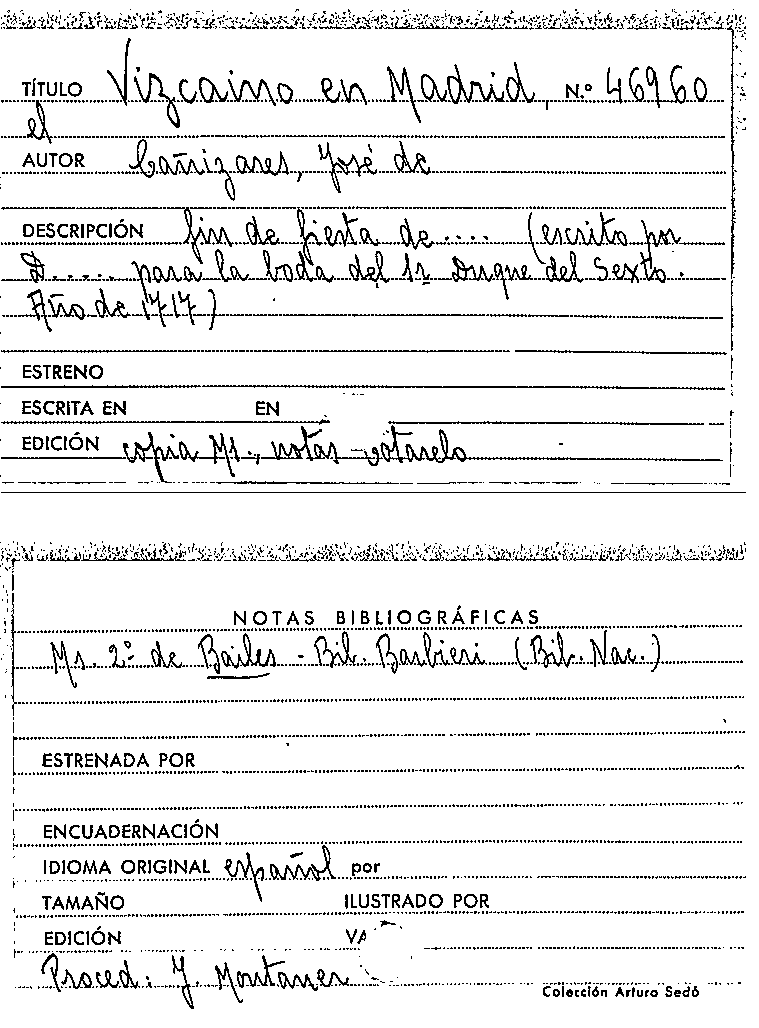 TÍTULO Vizcaino en Madrid, N.º 46960
el
AUTOR Cañizares, José de
DESCRIPCIÓN fin de fiesta de .... (escrito por
D..... para la boda del Sr. Duque del Sexto.
Año de 1717)
ESTRENO
ESCRITA EN EN
EDICIÓN copia Ms., notas cotarelo
NOTAS BIBLIOGRÁFICAS
Ms. 2º de Bailes - Bib. Barbieri (Bib. Nac.)
ESTRENADA POR
ENCUADERNACIÓN
IDIOMA ORIGINAL español por
TAMAÑO ILUSTRADO POR
EDICIÓN
Proced: J. Montaner
Colección Arturo Sedó